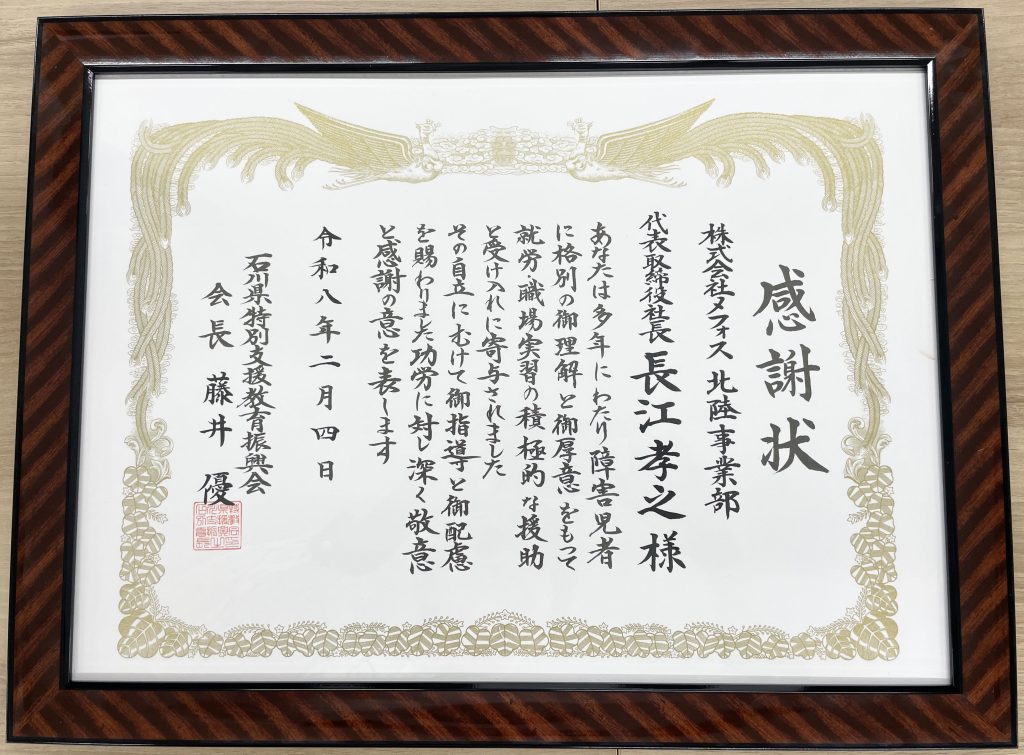 感謝状
株式会社メフォス 北陸事業部
代表取締役社長 長江孝之様
あなたは多年にわたり障害児者
に格別の御理解と御厚意をもって
就労・職場実習の積極的な援助
と受け入れに寄与されました
その自立にむけて御指導と御配慮
を賜わりました功労に対し深く敬意
と感謝の意を表します
令和八年二月四日
石川県特別支援教育振興会
会長 藤井 優